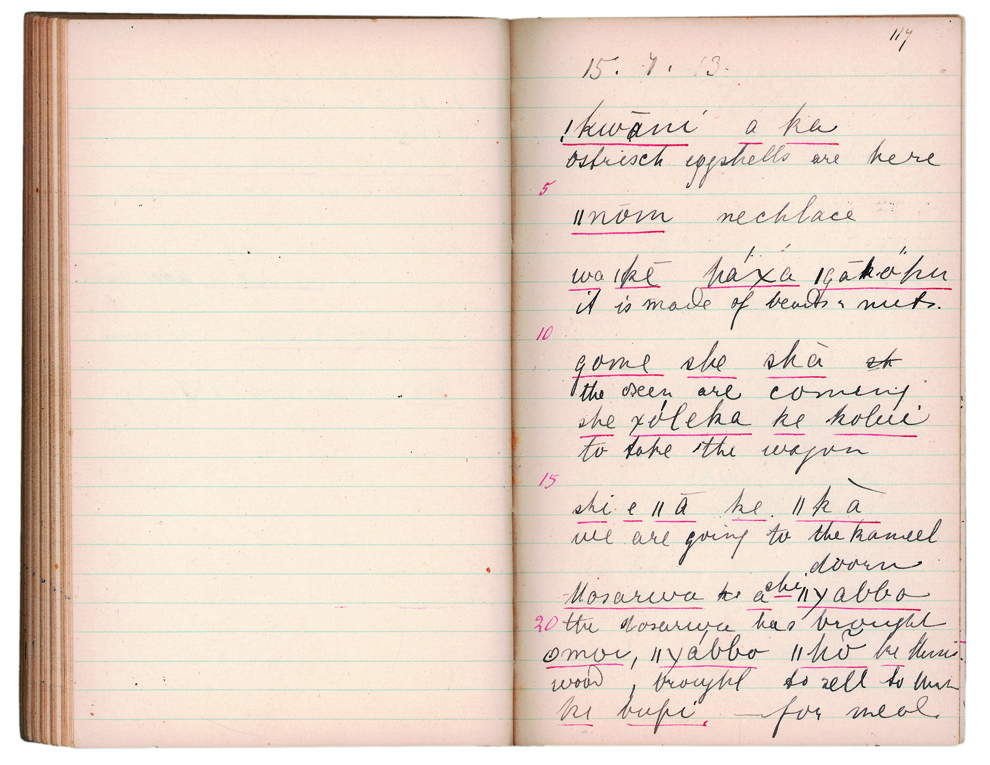 117
15. 7. 13.
!kwāni a ka
ostrisch eggshells are here
5
ǁnōm necklace
wa |kē ha´xa
it is made of beads & nuts.
10
gome she shā sh
the oxen are coming
she xóleka ke koloi
to take the wagon
15
shi e ǁā ke ǁkà
we are going to the kameel
doorn
Mosarwa ke a shi ǁyabbo
20 the Mosarwa has brought
omou, ǁyábbo ǁhō ke
wood, brought to sell to
ke bupi. — for meal.